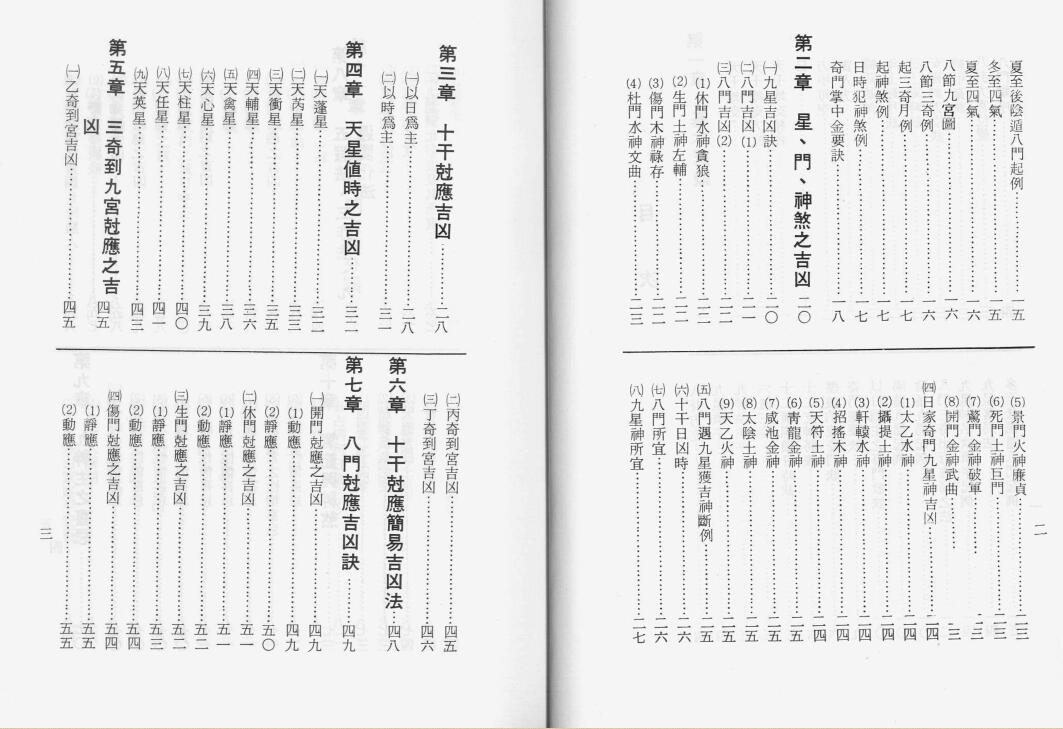 夏至後陰遁八門起例………一五
冬至四氣………一五
夏至四氣………一六
八節九宮圖………一六
八節三奇例………一六
起三奇月例………一七
起神煞例………一七
日時犯神煞例………一七
奇門掌中金要訣………一八
第二章 星、門、神煞之吉凶………二〇
㈠九星吉凶訣………二〇
㈡八門吉凶⑴………二一
㈢八門吉凶⑵………二二
⑴休門水神貪狼………二二
⑵生門土神左輔………二二
⑶傷門木神祿存………二二
⑷杜門水神文曲………二三
⑸景門火神廉貞………二三
⑹死門土神巨門………二三
⑺驚門金神破軍………二三
⑻開門金神武曲………二三
㈣日家奇門九星神吉凶………二四
⑴太乙水神………二四
⑵攝提土神………二四
⑶軒轅水神………二四
⑷招搖木神………二四
⑸天符土神………二四
⑹青龍金神………二五
⑺咸池金神………二五
⑻太陰土神………二五
⑼天乙火神………二五
㈤八門遇九星獲吉神斷例………二五
㈥十干日凶時………二六
㈦八門所宜………二六
㈧九星神所宜………二七
二
第三章 十干尅應吉凶………二八
㈠以日為主………二八
㈡以時為主………三一
第四章 天星値時之吉凶………三二
㈠天蓬星………三二
㈡天芮星………三三
㈢天衝星………三五
㈣天輔星………三六
㈤天禽星………三八
㈥天心星………三九
㈦天柱星………四〇
㈧天任星………四一
㈨天英星………四三
第五章 三奇到九宮尅應之吉
凶………四五
㈠乙奇到宮吉凶………四五
㈡丙奇到宮吉凶………四五
㈢丁奇到宮吉凶………四六
第六章 十干尅應簡易吉凶法………四八
第七章 八門尅應吉凶訣………四九
㈠開門尅應之吉凶………四九
⑴動應………四九
⑵動應………五〇
㈡休門尅應之吉凶………五一
⑴靜應………五一
⑵動應………五二
㈢生門尅應之吉凶………五二
⑴靜應………五三
⑵動應………五四
㈣傷門尅應之吉凶………五四
⑴靜應………五五
⑵動應………五五
三